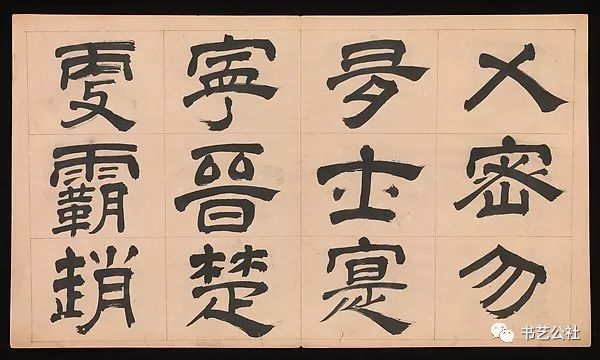 乂密勿
多士寔
寧晉楚
更霸趙
书艺公社